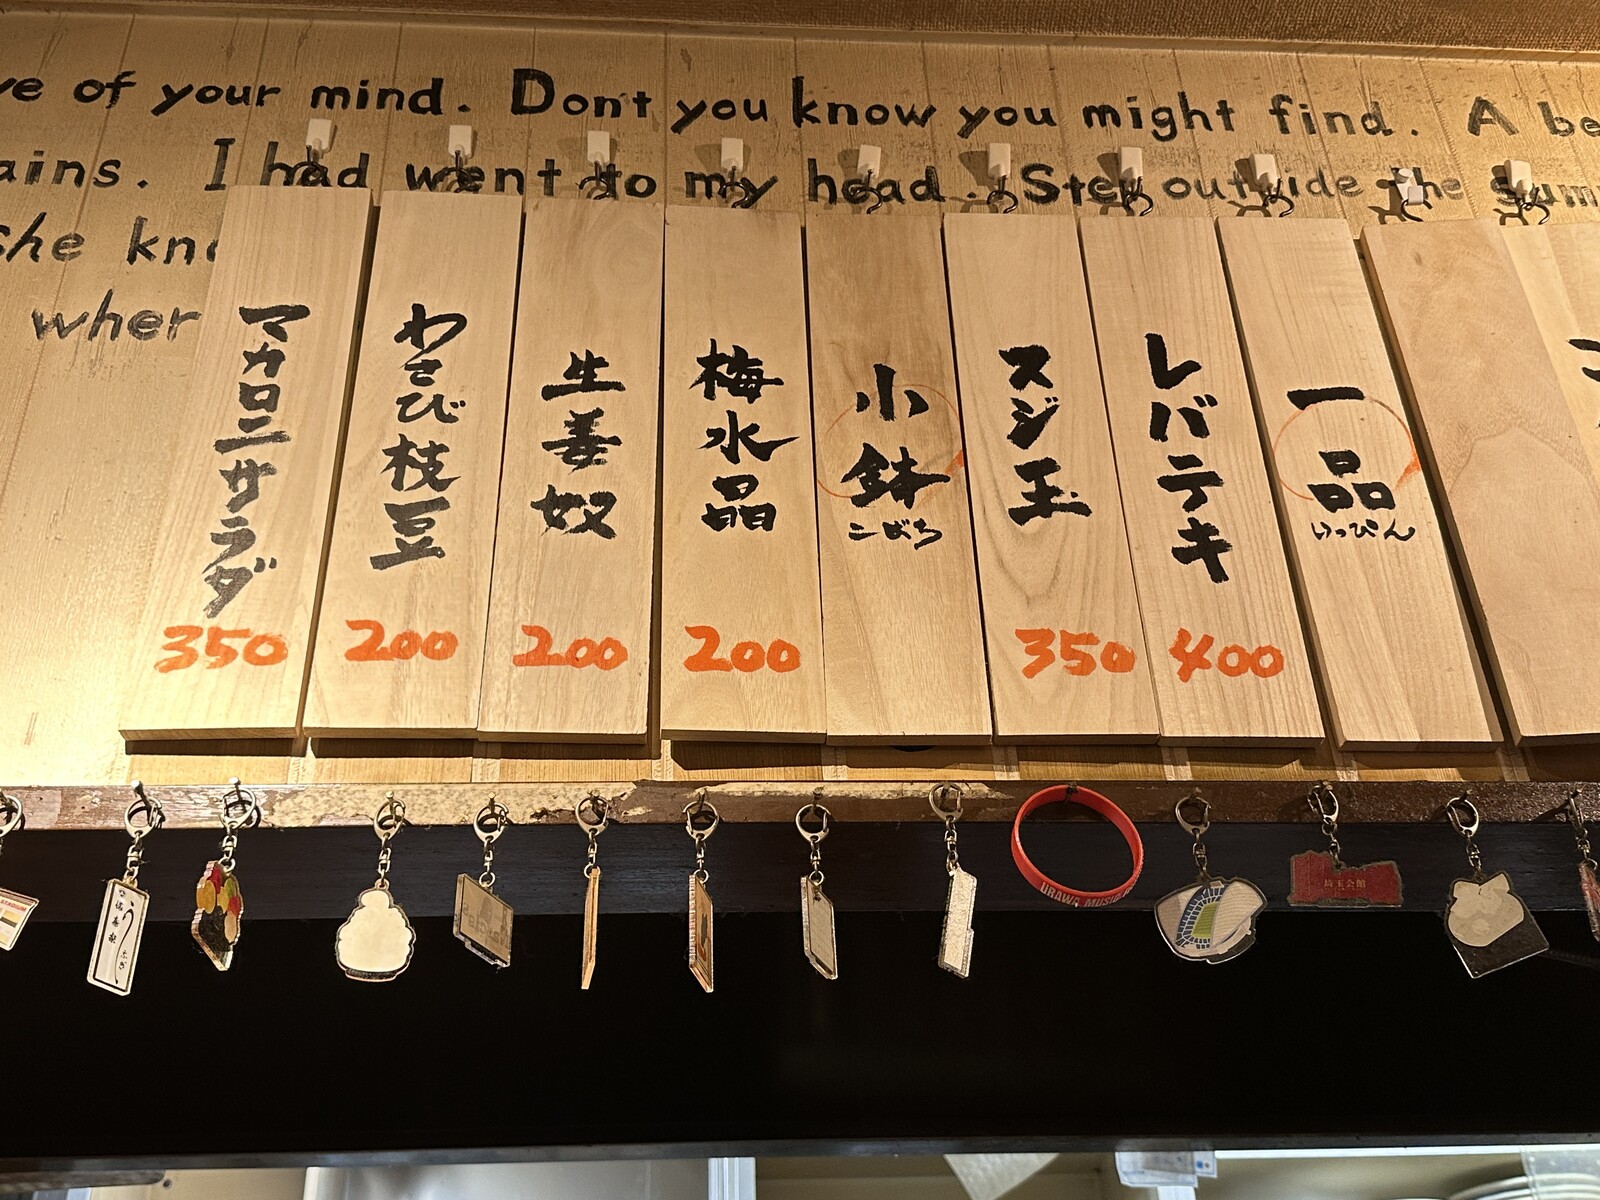 ve of your mind. Don't you know you might find. A be
ains. I had went to my head. Step outside the sum
she kn
wher
一品
いっぴん
レバテキ
400
スジ玉
350
小鉢
こばち
梅水晶
200
生姜奴
200
わさび枝豆
200
マカロニサラダ
350
URAWA MUSI
埼玉会館